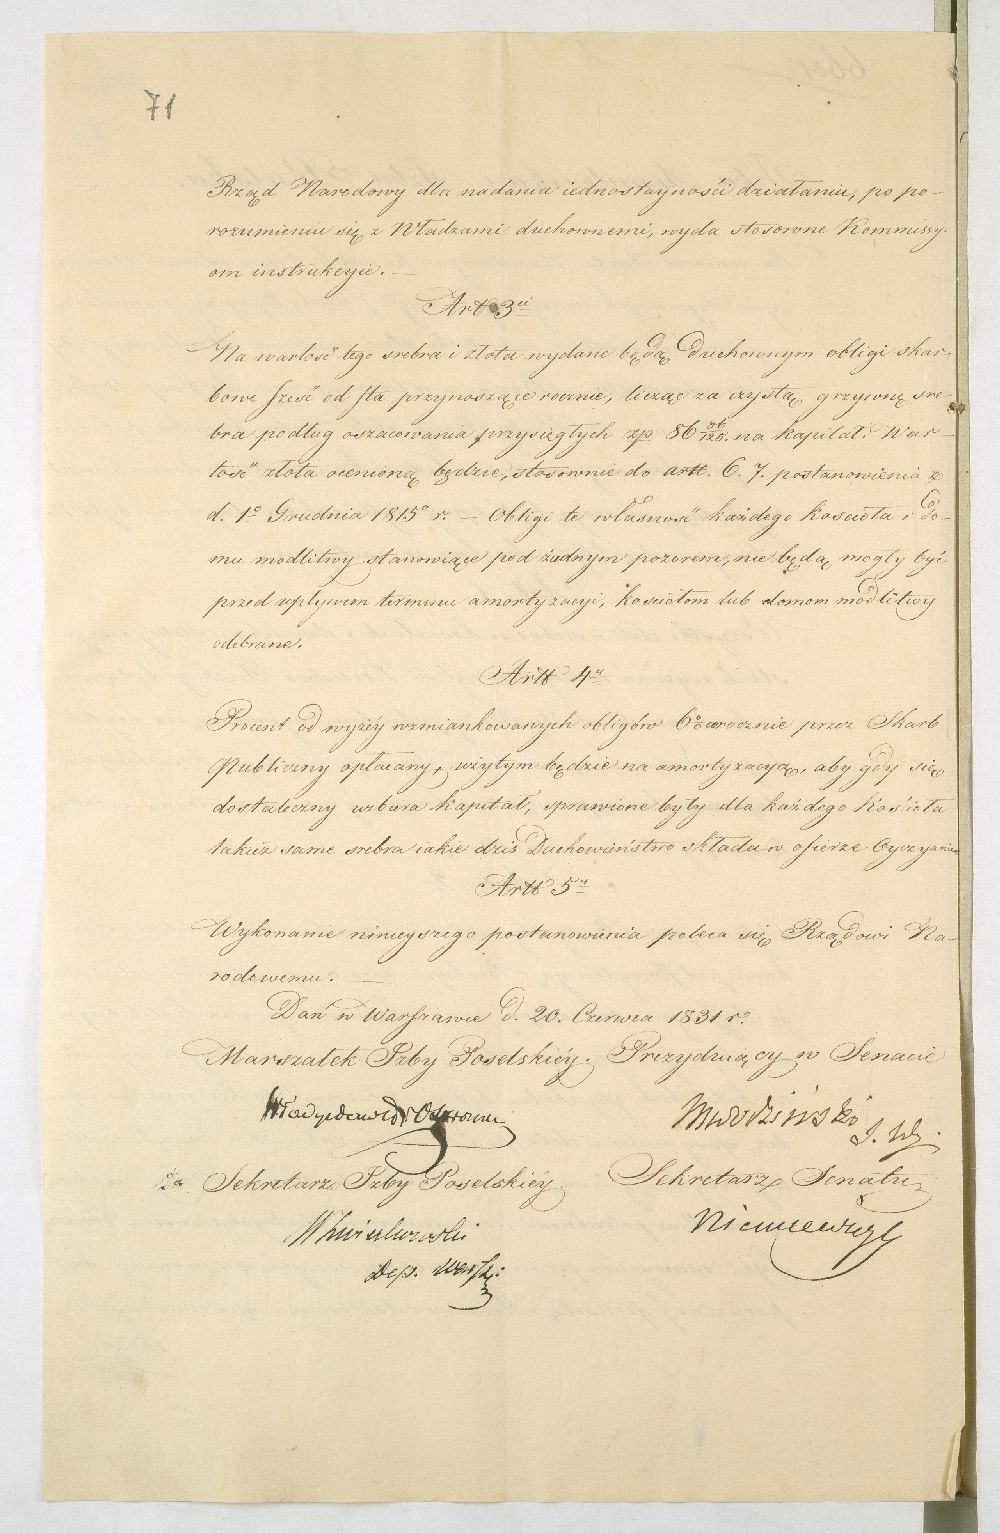 71
Rząd Narodowy dla nadania iednostayności działaniu, po po-
rozumieniu się z Władzami duchownemi, wyda stosowne Kommissy-
om instrukcyie. —
Artt 3ci
Na wartość tego srebra i złota wydane będą duchownym obligi skar-
bowe sześć od sta przynoszące rocznie, licząc za czystą grzywnę sre-
bra podług oszacowania przysięgłych zp 86 96/125. na kapitał. War-
tość złota ocenioną będzie, stosownie do artt. 6. 7. postanowienia z
d. 1o Grudnia 1815o r. — Obligi te własność każdego Kościoła i do-
mu modlitwy stanowiące pod żadnym pozorem, nie będą mogły być
przed upływem terminu amortyzacyi, kościołom lub domom modlitwy
odebrane.
Artt 4y
Procent od wyżéy wzmiankowanych obligów 6% rocznie przez Skarb
Publiczny opłacany, użytym będzie na amortyzacyą, aby gdy się
dostateczny uzbiera kapitał, sprawione były dla każdego Kościoła
takież same srebra iakie dziś Duchowieństwo składa w ofierze Oyczyznie
Artt 5y
Wykonanie ninieyszego postanowienia poleca się Rządowi Na-
rodowemu. —
Dan w Warszawie d. 20. Czerwca 1831 ro.
Marszałek Izby Poselskiéy. Prezyduiący w Senacie
Władysław Ostrowski
Miączyński S. W.
za Sekretarz Izby Poselskiéy. Sekretarz Senatu
Niemcewicz
Dep. Warsz: